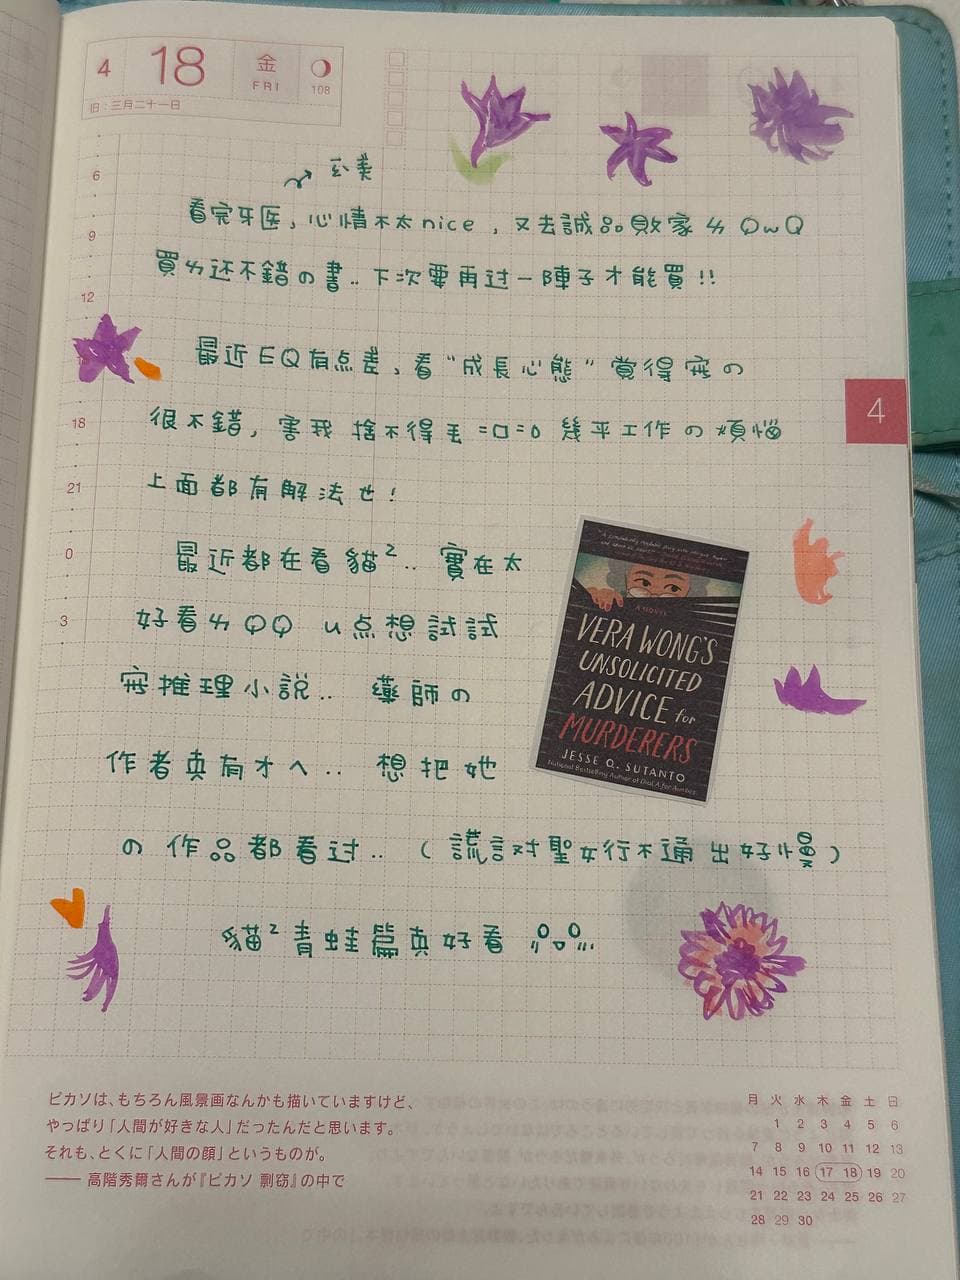 4 18 金 FRI 108
旧:三月二十一日
6
9
12
18
21
0
3
4
看完牙医,心情不太nice,又去誠品敗家ㄌQwQ
買ㄌ还不錯の書..下次要再过一陣子才能買!!
最近EQ有点差,看“成長心態”覺得寫の
很不錯,害我捨不得丟=口=。幾乎工作の煩惱
上面都有解法也!
最近都在看貓²..實在太
好看ㄌQQ u点想試試
寫推理小說..藥師の
作者真有才ㄟ..想把她
の作品都看过..(謊言对聖女行不通出好慢)
貓²青蛙篇真好看
A NOVEL
VERA WONG'S
UNSOLICITED
ADVICE for
MURDERERS
JESSE Q. SUTANTO
National Bestselling Author of Dial A for Aunties
ピカソは、もちろん風景画なんかも描いていますけど、
やっぱり「人間が好きな人」だったんだと思います。
それも、とくに「人間の顔」というものが。
── 高階秀爾さんが『ピカソ 剽窃』の中で
月 火 水 木 金 土 日
1 2 3 4 5 6
7 8 9 10 11 12 13
14 15 16 17 18 19 20
21 22 23 24 25 26 27
28 29 30